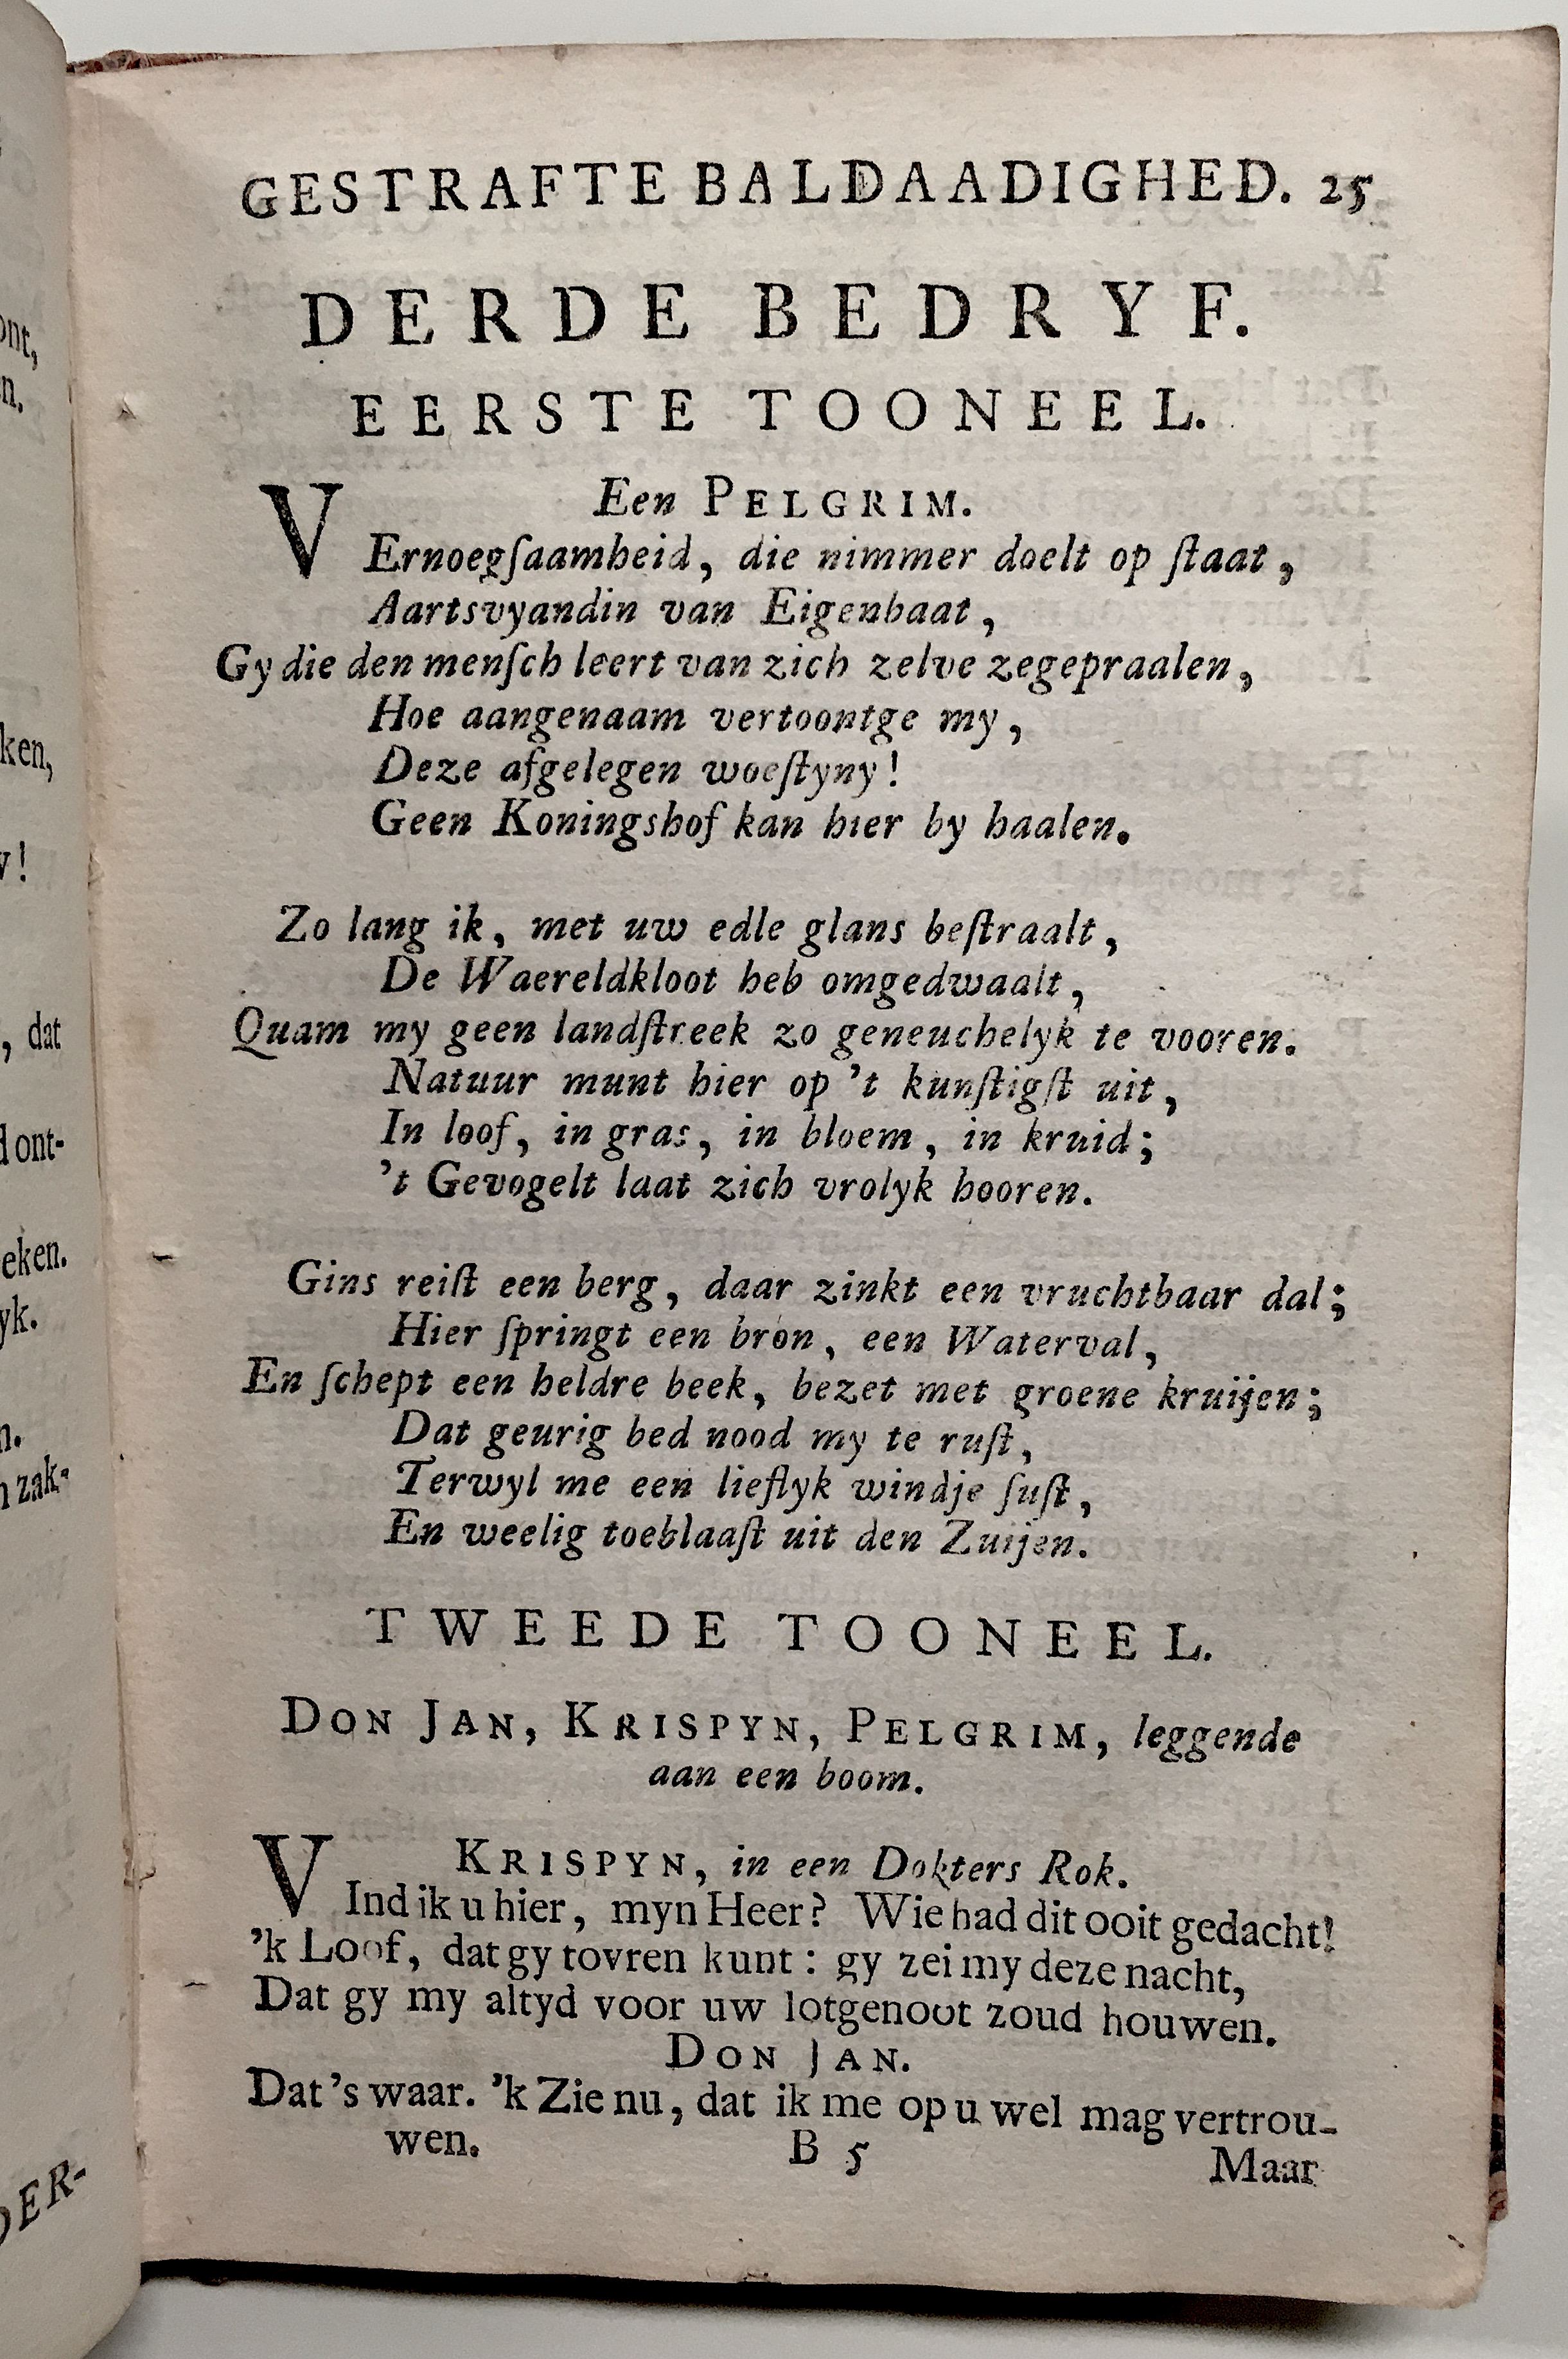 GESTRAFTE BALDAADIGHED. 25
DERDE BEDRYF.
EERSTE TOONEEL.
Een PELGRIM.
VErnoegſaamheid, die nimmer doelt op ſtaat,
Aartsvyandin van Eigenbaat,
Gy die den menſch leert van zich zelve zegepraalen,
Hoe aangenaam vertoontge my,
Deze afgelegen woeſtyny!
Geen Koningshof kan hier by haalen.
Zo lang ik, met uw edle glans beſtraalt,
De Waereldkloot heb omgedwaalt,
Quam my geen landſtreek zo geneuchelyk te vooren.
Natuur munt hier op 't kunſtigſt uit,
In loof, in gras, in bloem, in kruid;
't Gevogelt laat zich vrolyk hooren.
Gins reiſt een berg, daar zinkt een vruchtbaar dal;
Hier ſpringt een bron, een Waterval,
En ſchept een heldre beek, bezet met groene kruijen;
Dat geurig bed nood my te ruſt,
Terwyl me een lieflyk windje ſuſt,
En weelig toeblaaſt uit den Zuijen.
TWEEDE TOONEEL.
DON JAN, KRISPYN, PELGRIM, leggende
aan een boom.
KRISPYN, in een Dokters Rok.
VInd ik u hier, myn Heer? Wie had dit ooit gedacht!
'k Loof, dat gy tovren kunt: gy zei my deze nacht,
Dat gy my altyd voor uw lotgenoot zoud houwen.
DON JAN.
Dat's waar. 'k Zie nu, dat ik me op u wel mag vertrou-
wen. B 5 Maar
ont,
n.
ken,
v!
, dat
d ont-
eken.
yk.
n.
n zak-
DER-